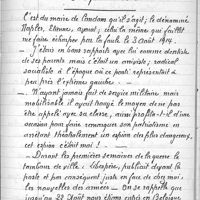 C'est du maire de Condom qu'il s'agit; le dénommé
Naples, Etienne, avoué; celui-là même qui faillit
me faire écharper par la foule le 3 Août 1914.
— J'étais en bons rapports avec lui comme dentiste
de ses parents mais c'était un arriviste; radical
socialiste à l'époque où ce parti représentait à
peu près l'extrême gauche.
— N'ayant jamais fait de service militaire, mais
mobilisable il ayait trouvé le moyen de ne pas
être appelé avec sa classe, ainsi profita-t-il d'une
occasion pour faire remarquer son patriotisme en
arrêtant théatralement un espion des plus dangereux,
cet espion c'était moi!
— Durant les premières semaines de la guerre le
tambour de ville
poste et par conséquent juste en face de chez moi,
les nouvelles des armées — On se rappelle que
jusqu'au 22 Août nous étions entrés en Belgique